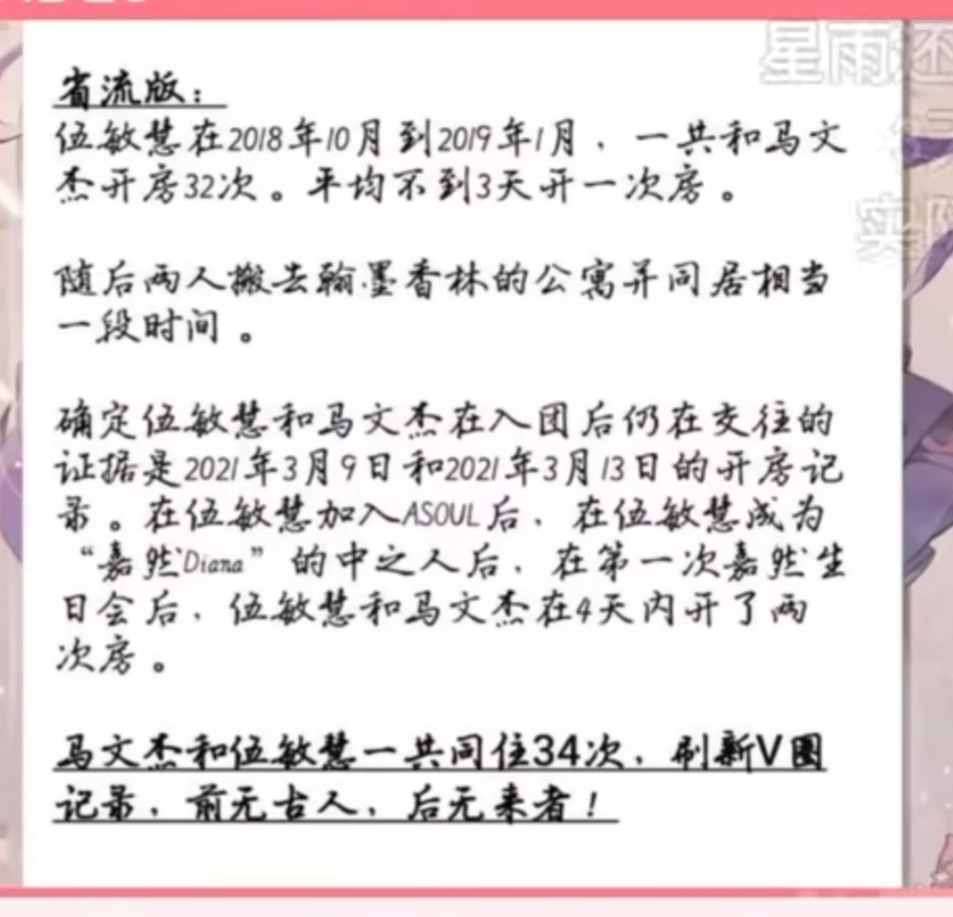 星雨
省流版：
伍敏慧在2018年10月到2019年1月，一共和马文
杰开房32次。平均不到3天开一次房。
随后两人搬去翰墨香林的公寓并同居相当
一段时间。
确定伍敏慧和马文杰在入团后仍在交往的
证据是2021年3月9日和2021年3月13日的开房记
录。在伍敏慧加入ASOUL后，在伍敏慧成为
“嘉然Diana”的中之人后，在第一次嘉然生
日会后，伍敏慧和马文杰在4天内开了两
次房。
马文杰和伍敏慧一共同住34次，刷新V圈
记录，前无古人，后无来者！